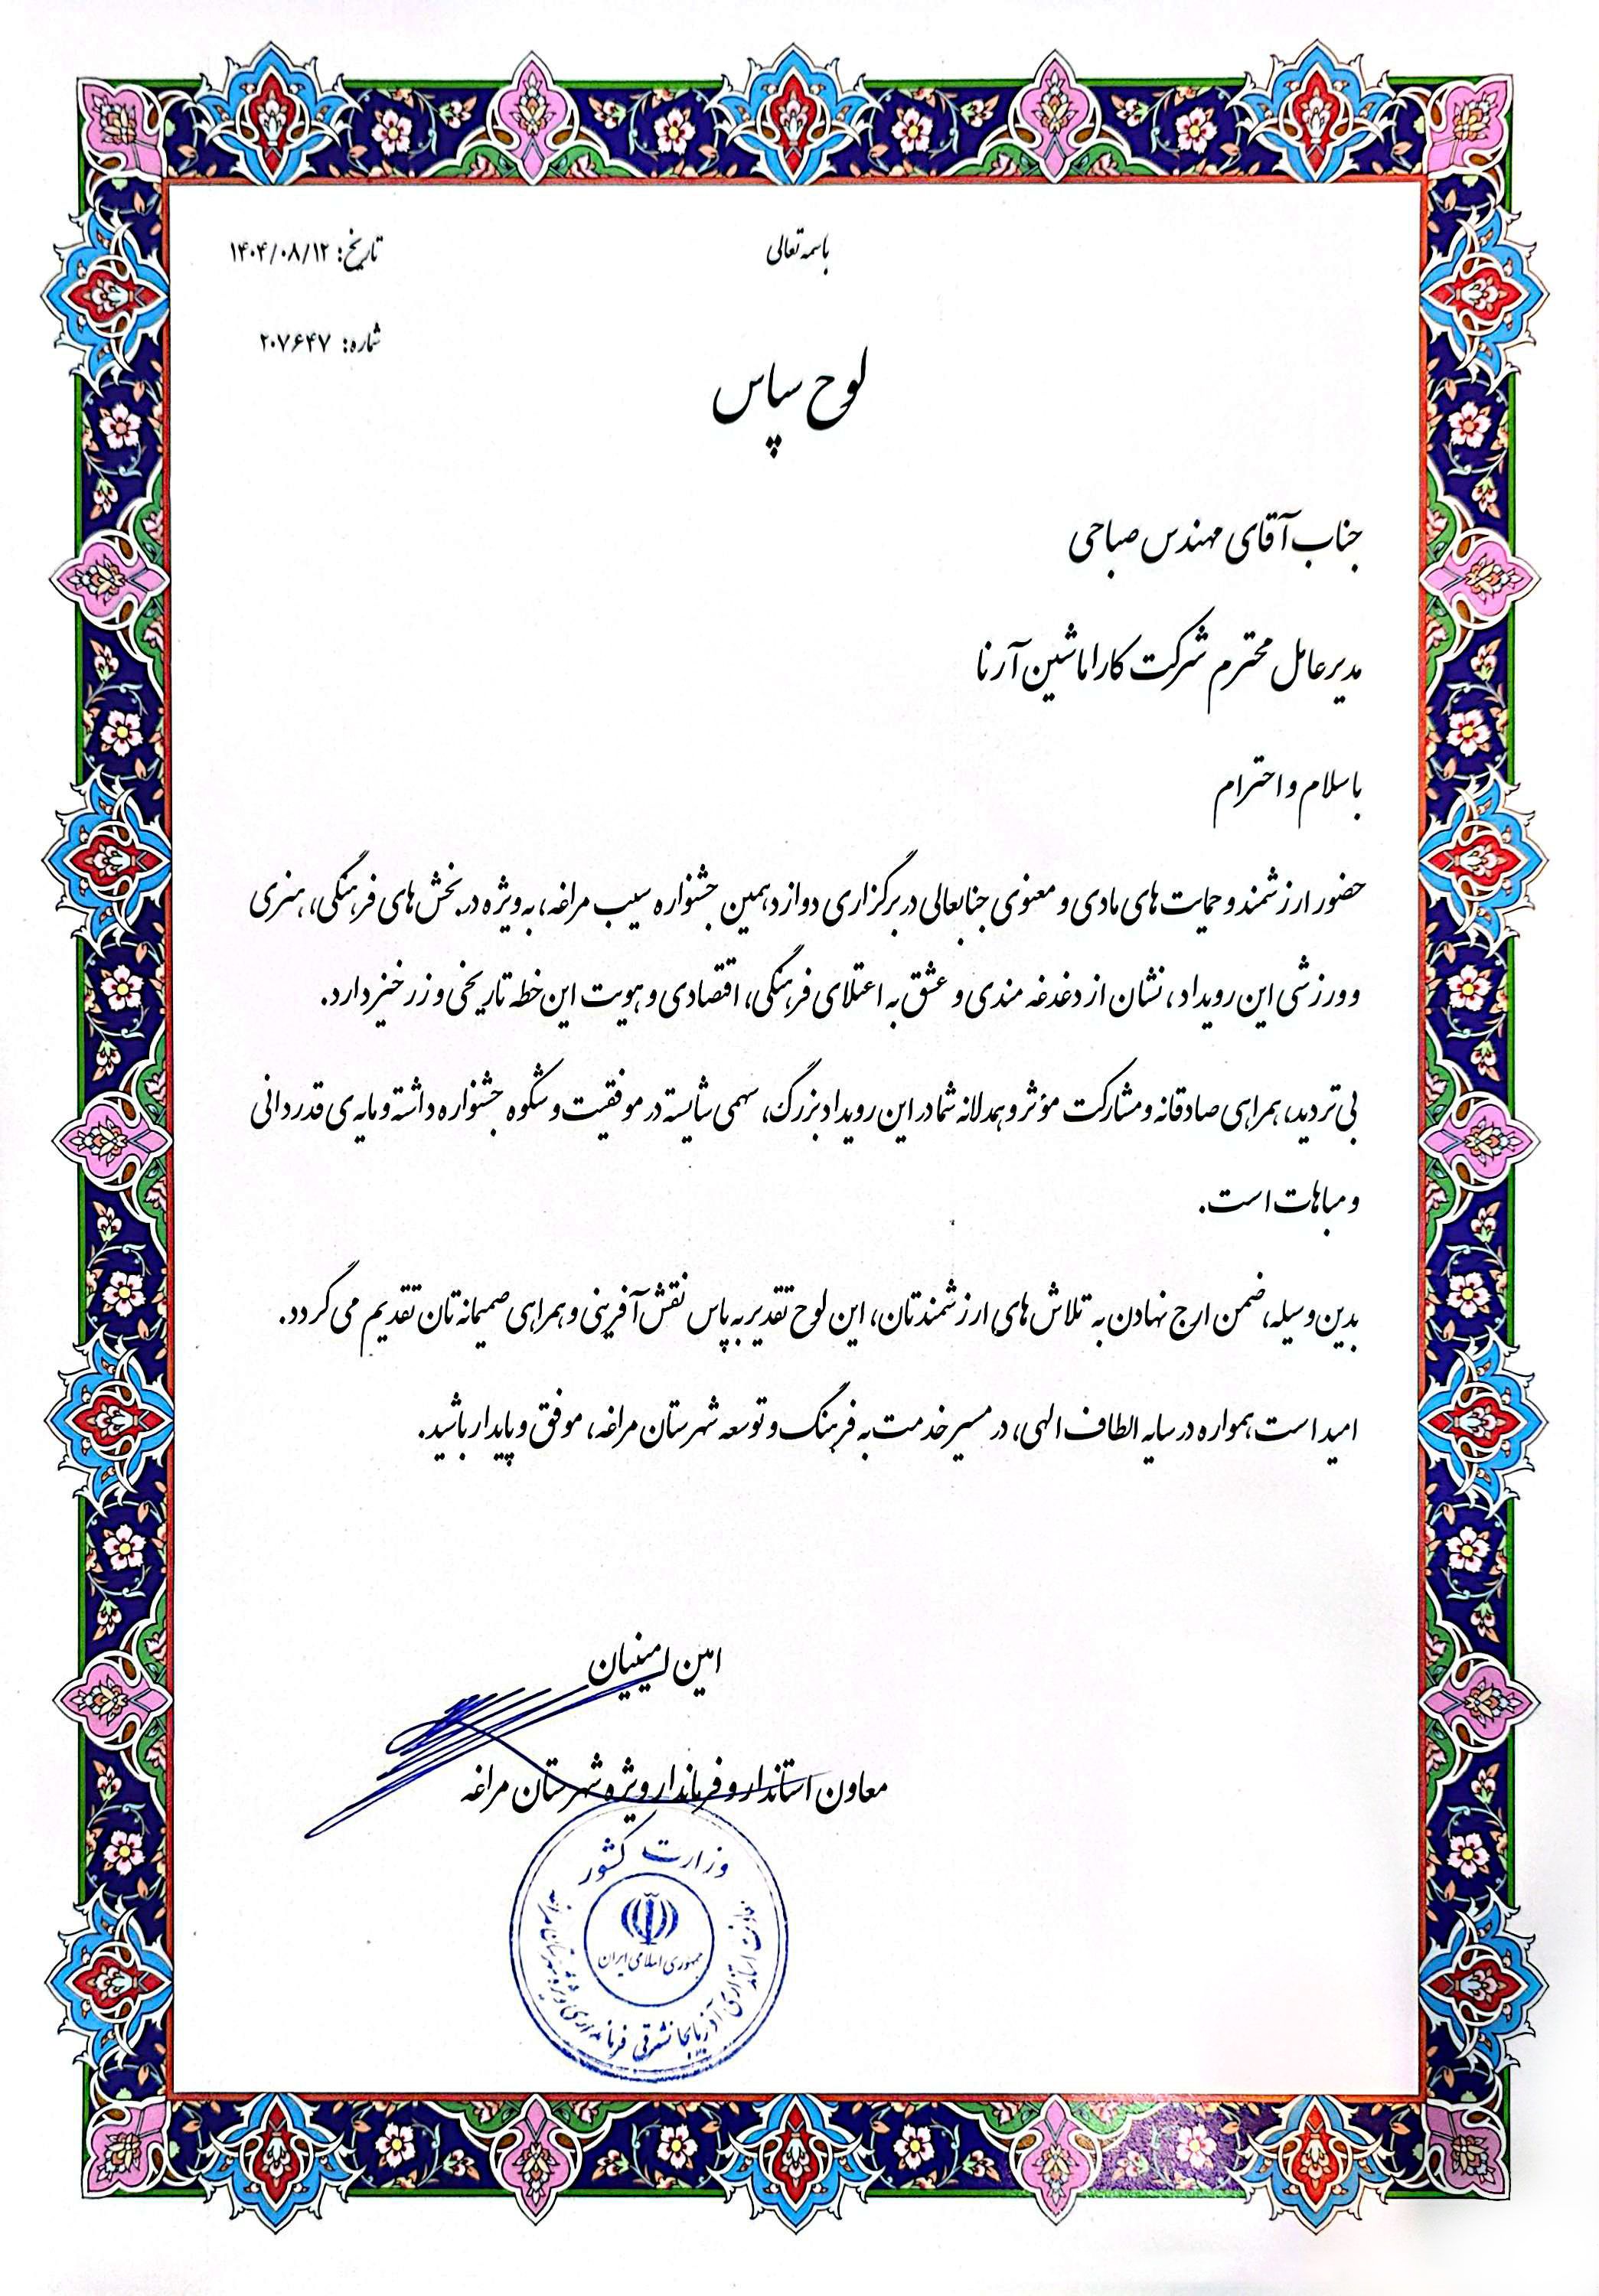 باسمه تعالی
تاریخ: ۱۴۰۴/۰۸/۱۲
شماره: ۲۰۷۶۴۷
لوح سپاس
جناب آقای مهندس صباحی
مدیرعامل محترم شرکت کاراماشین آرنا
باسلام و احترام
حضور ارزشمند و حمایت های مادی و معنوی جنابعالی در برگزاری دوازدهمین جشنواره سیب مراغه، به ویژه در بخش های فرهنگی، هنری
و ورزشی این رویداد، نشان از دغدغه مندی و عشق به اعتلای فرهنگی، اقتصادی و هویت این خطه تاریخی و زرخیز دارد.
بی تردید، همراهی صادقانه و مشارکت مؤثر و همدلانه شما در این رویداد بزرگ، سهمی شایسته در موفقیت و شکوه جشنواره داشته و مایه ی قدردانی
و مباهات است.
بدین وسیله، ضمن ارج نهادن به تلاش های ارزشمندتان، این لوح تقدیر به پاس نقش آفرینی و همراهی صمیمانه تان تقدیم می گردد.
امید است همواره در سایه الطاف الهی، در مسیر خدمت به فرهنگ و توسعه شهرستان مراغه، موفق و پایدار باشید.
امین امینیان
معاون استاندار و فرماندار ویژه شهرستان مراغه
وزارت کشور
جمهوری اسلامی ایران
معاونت استانداری آذربایجانشرقی فرمانداری ویژه شهرستان مراغه